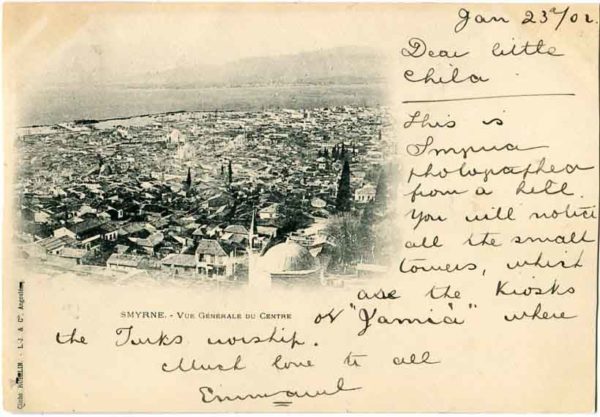 Jan 23rd/02.
Dear little
Child
This is
Smyrna
photographed
from a hill.
You will notice
all the small
towers, which
are the Kiosks
or "Jamia" where
the Turks worship.
Much love to all
Emmanuel
SMYRNE. - VUE GÉNÉRALE DU CENTRE
Cliché RUBELLIN - L-J. & Cie, Angoulême